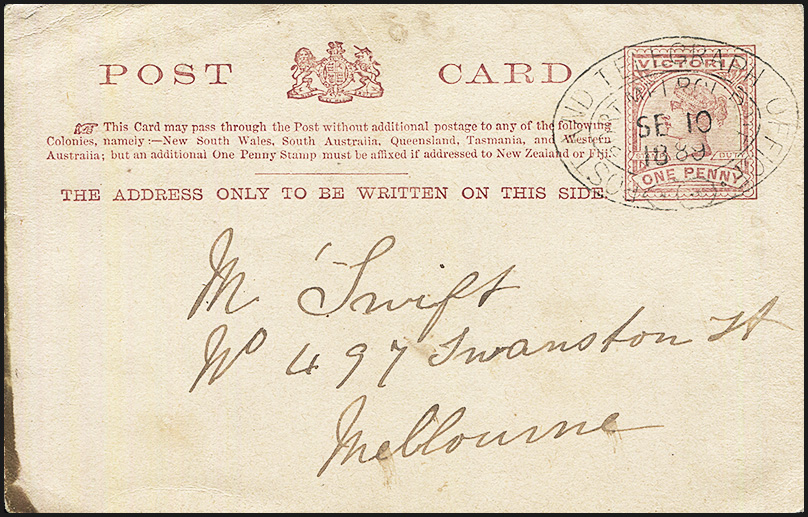 POST CARD
VICTORIA
This Card may pass through the Post without additional postage to any of the following
Colonies, namely:—New South Wales, South Australia, Queensland, Tasmania, and Western
Australia; but an additional One Penny Stamp must be affixed if addressed to New Zealand or Fiji.
THE ADDRESS ONLY TO BE WRITTEN ON THIS SIDE.
DUTY
ONE PENNY
POST AND TELEGRAPH OFFICE
SE 10
1889
M Swift
No 497 Swanston St
Melbourne